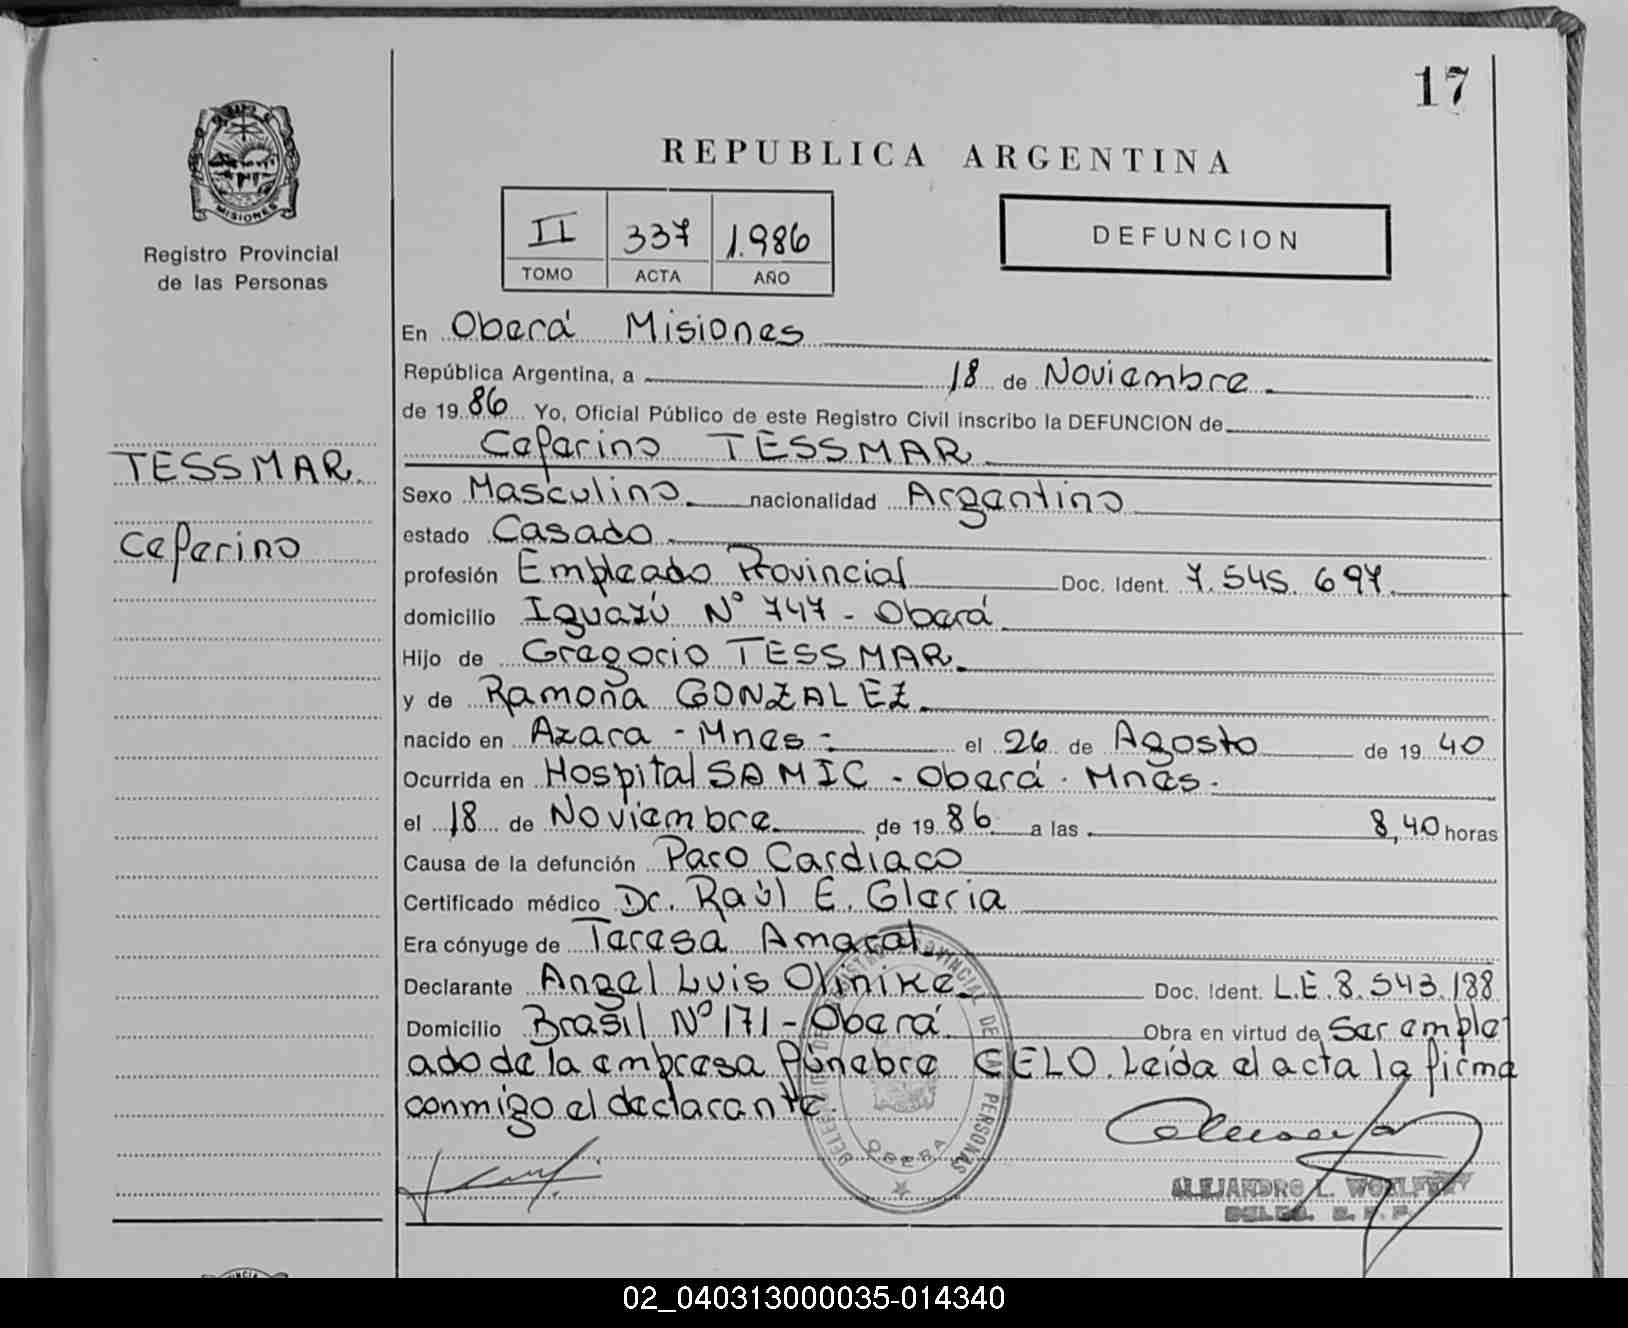 17
REPUBLICA ARGENTINA
MISIONES
Registro Provincial
de las Personas
II 337 1.986
TOMO ACTA AÑO
DEFUNCION
En Oberá Misiones
República Argentina, a 18 de Noviembre
de 19 86 Yo, Oficial Público de este Registro Civil inscribo la DEFUNCION de
Ceferino TESSMAR
TESSMAR
Ceferino
Sexo Masculino nacionalidad Argentino
estado Casado
profesión Empleado Provincial Doc. Ident. 7.545.697
domicilio Iguazú Nº 747 - Oberá
Hijo de Gregorio TESSMAR
y de Ramona GONZALEZ
nacido en Azara - Mnes - el 26 de Agosto de 19 40
Ocurrida en Hospital SAMIC - Oberá - Mnes -
el 18 de Noviembre de 19 86 a las 8,40 horas
Causa de la defunción Paro Cardiaco
Certificado médico Dr. Raúl E. Gleria
Era cónyuge de Teresa Amaral
Declarante Angel Luis Olinike Doc. Ident. L.E. 8.543.188
Domicilio Brasil Nº 171 - Oberá Obra en virtud de ser emple
ado de la empresa fúnebre CELO. Leída el acta la firma
conmigo el declarante.
REGISTRO PROVINCIAL DE LAS PERSONAS
OBERA
ALEJANDRO L.
02_040313000035-014340